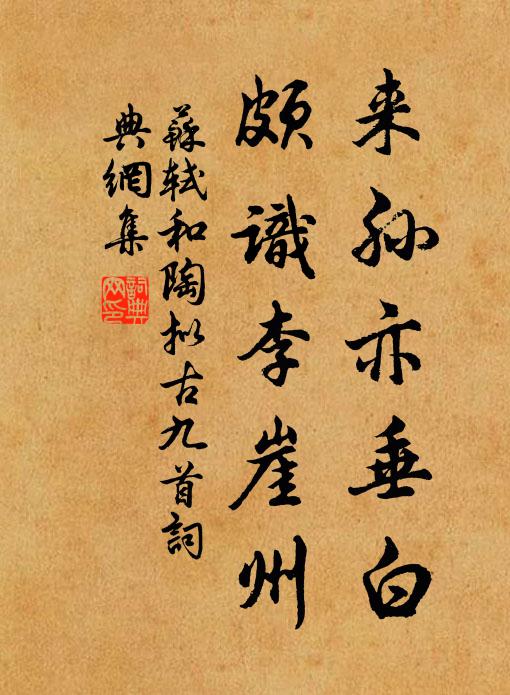 来孙亦垂白
頗識李崖州
蘇軾和陶拟古九首詞
典網集
詞典
网印